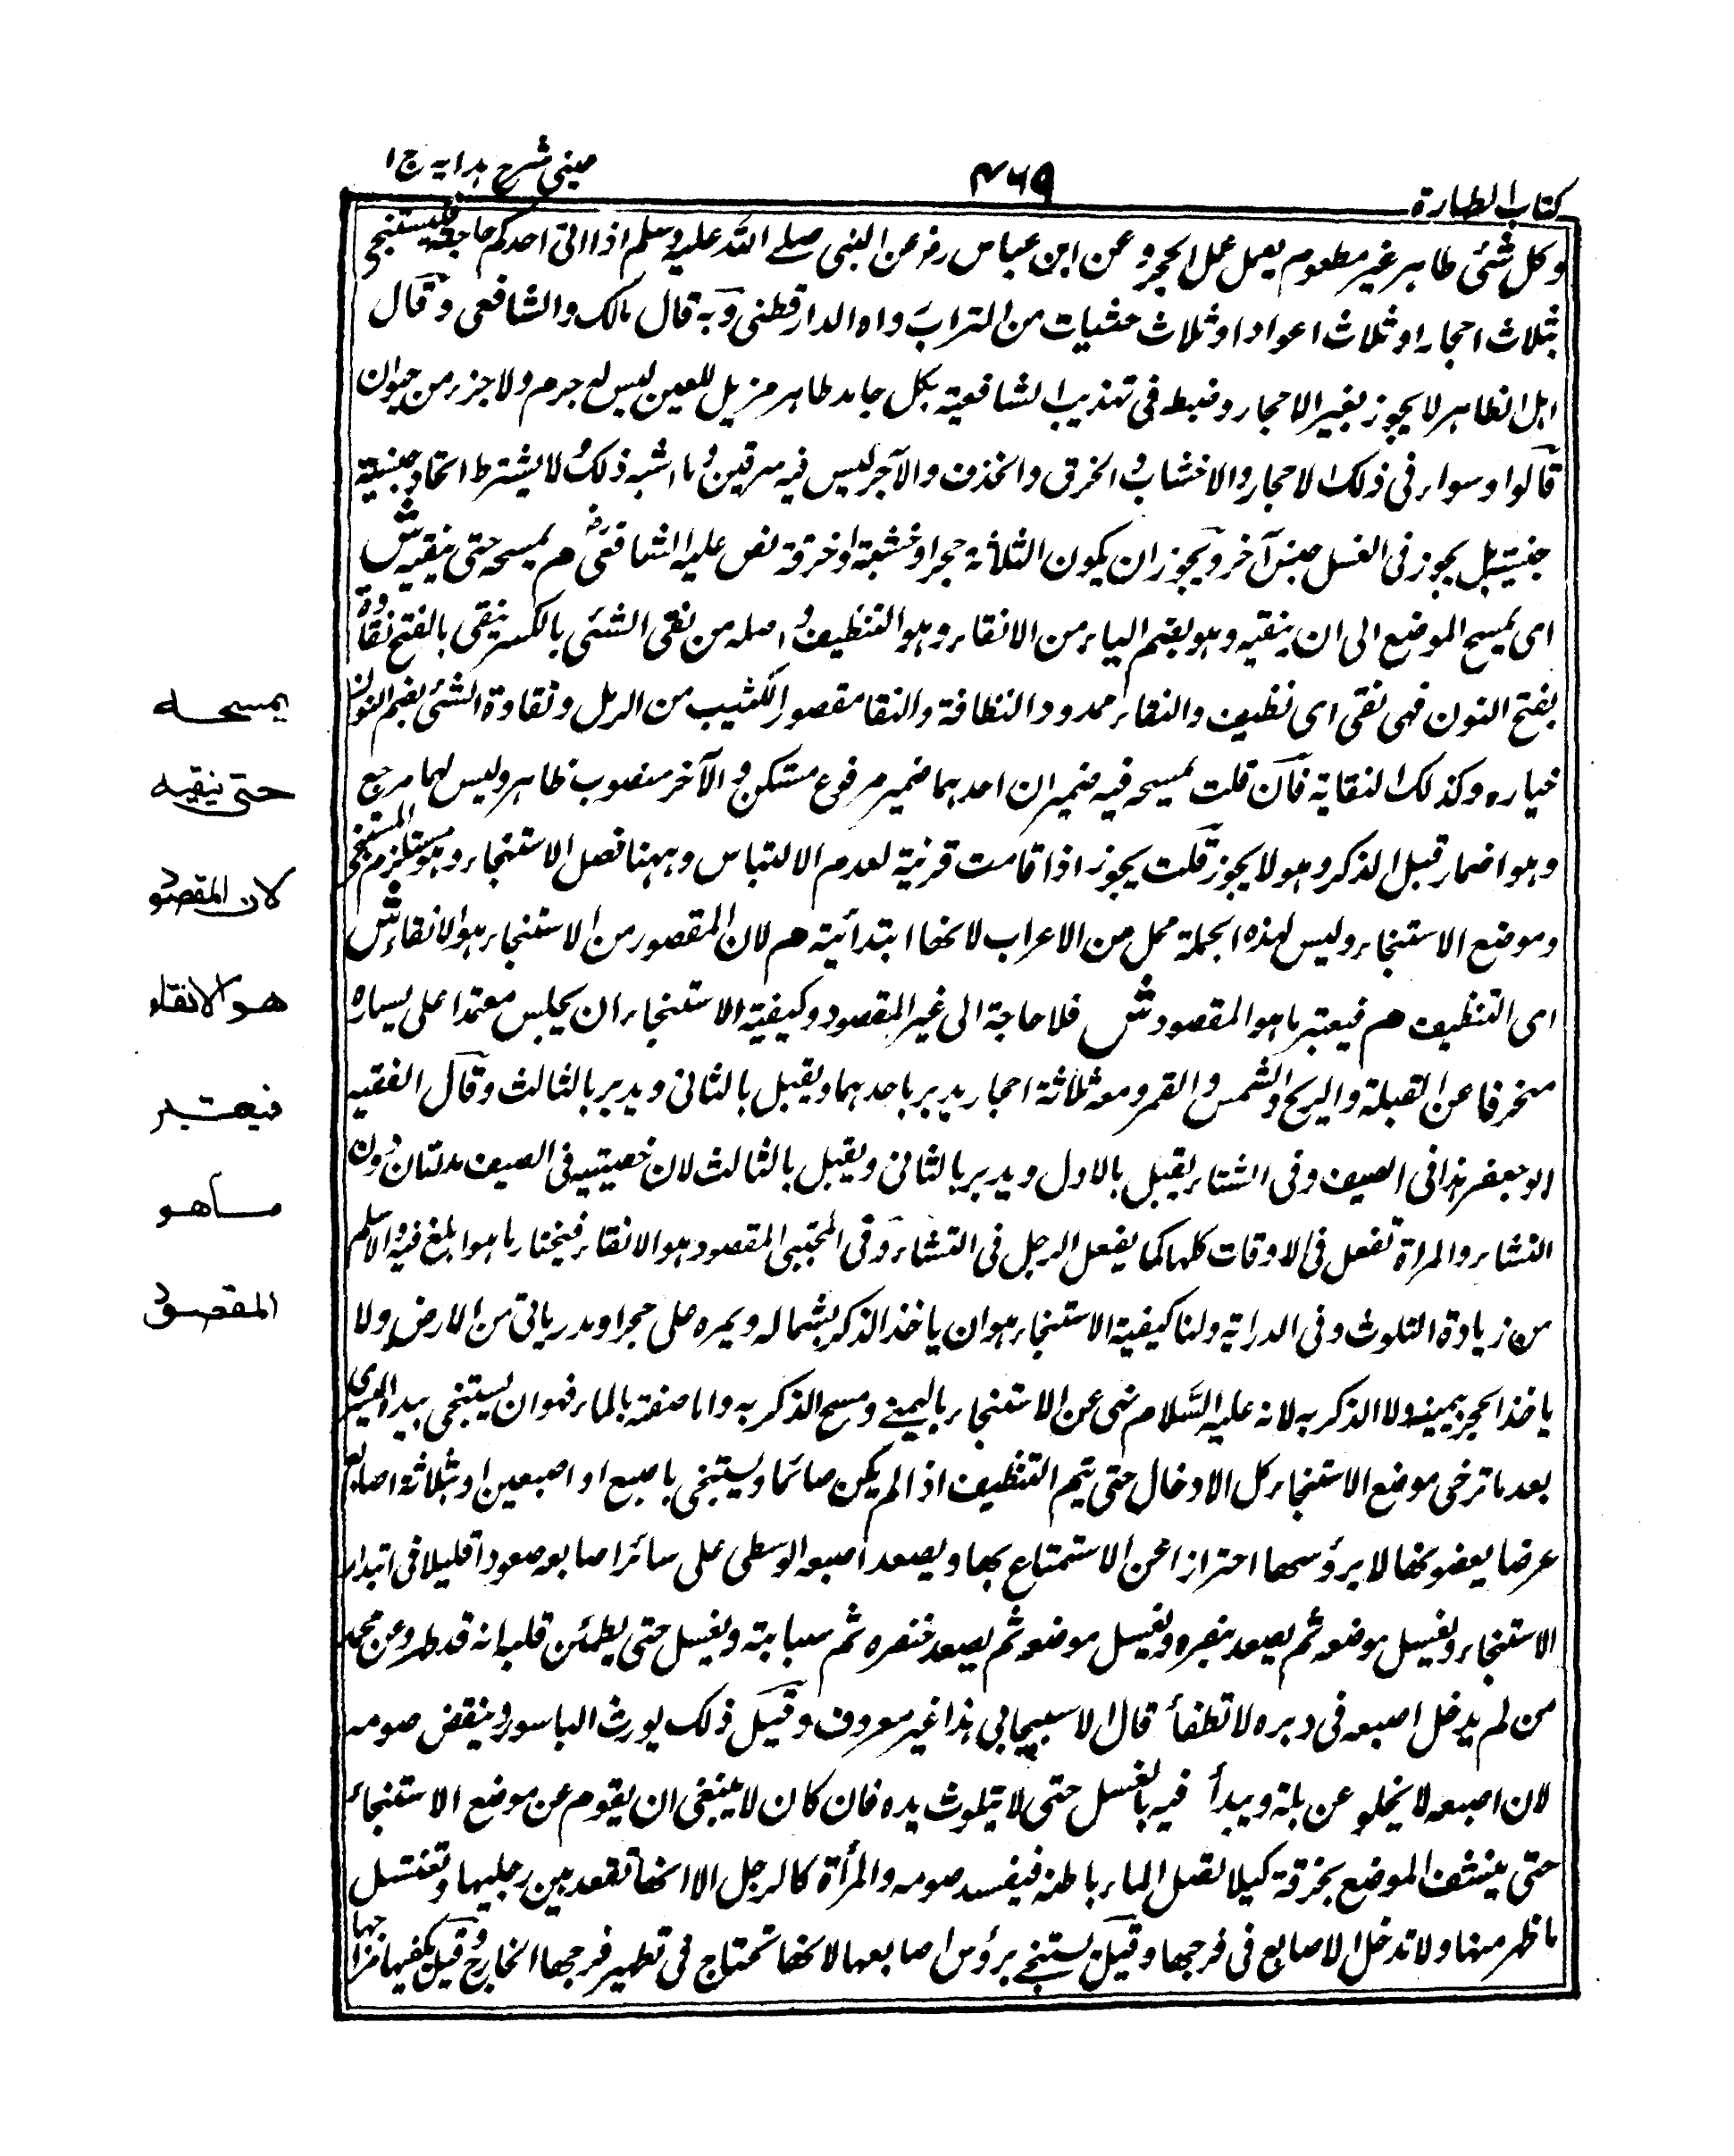 كتاب الطهارة
٤٦٩
عينى شرح هدايه ج ١
وكل شئى طاهر غير مطعوم يعمل عمل الحجر وعن ابن عباس رض عن النبى صلے الله عليه وسلم اذا اتى احدكم حاجته فليستنجى
بثلاث احجار او ثلاث اعواد او ثلاث حثيات من التراب رواه الدارقطنى وبه قال مالك والشافعى وقال
اهل الظاهر لا يجوز بغير الاحجار وضبطه فى تهذيب الشافعية بكل جامد طاهر مزيل للعين ليس له جرم ولا جزء من حيوان
قالوا وسواء فى ذلك الاحجار والاخشاب والخرق والخذف والآجر ليس فيه سرقين وما اشبه ذلك ولا يشترط اتحاد جنسية
جنسيته بل يجوز فى الغسل جنس آخر ويجوز ان يكون الثلاثة حجرا وخشبة او خرقة نص عليه الشافعى رض م يمسحه حتى ينقيه ش
اى يمسح الموضع الى ان ينقيه وهو بضم الياء من الانقاء وهو التنظيف واصله من نقى الشئى بالكسر ينقى بالفتح نقاوة
بفتح النون فهى نقى اى نظيف والنقاء ممدود النظافة والنقا مقصور الكثيب من الرمل ونقاوة الشئى بضم النون
خياره وكذلك النقاية فان قلت يمسحه فيه ضميران احدهما ضمير مرفوع مستكن والآخر منصوب ظاهر وليس لهما مرجع
وهو اضمار قبل الذكر وهو لا يجوز قلت يجوز اذا قامت قرنية لعدم الالتباس وههنا فصل الاستنجاء وهو مستلزم المستنجى
وموضع الاستنجاء وليس لهذه الجملة محل من الاعراب لانها ابتدائية م لان المقصود من الاستنجاء هو الانقاء ش
اى التنظيف م فيعتبر ما هو المقصود ش فلا حاجة الى غير المقصود وكيفية الاستنجاء ان يجلس معتمدا على يساره
منحرفا عن القبلة والريح والشمس والقمر ومعه ثلاثة احجار يدبر باحدهما ويقبل بالثانى ويدبر بالثالث وقال الفقيه
ابو جعفر هذا فى الصيف وفى الشتاء يقبل بالاول ويدبر بالثانى ويقبل بالثالث لان خصيتيه فى الصيف مدلتان دون
الشتاء والمراة تفعل فى الاوقات كلها كما يفعل الرجل فى الشتاء وفى المجتبى المقصود هو الانقاء فيختار ما هو ابلغ فيه والاسلم
من زيادة التلوث وفى الدراية ولنا كيفية الاستنجاء هو ان ياخذ الذكر بشماله ويمره على حجر او مدر ياتى من الارض ولا
ياخذ الحجر بيمينه ولا الذكر به لانه عليه السلام نهى عن الاستنجاء باليمنى ومسح الذكر به واما صفته بالماء فهو ان يستنجى بيد اليسرى
بعد ما ترخى موضع الاستنجاء كل الادخال حتى يتم التنظيف اذا لم يكن صائما ويستنجى باصبع او اصبعين او بثلاثة اصابع
عرضا بعضو نها لا برؤسها احترازا عن الاستمتاع بها ويصعد اصبعه الوسطى على سائر اصابعه صعودا قليلا فى ابتداء
الاستنجاء ويغسل موضعه ثم يصعد بنصره ويغسل موضعه ثم يصعد خنصره ثم سبابته ويغسل حتى يطمئن قلبه انه قد طهر وعن محمد
من لم يدخل اصبعه فى دبره لا تطفأ قال الاسبيجابى هذا غير معروف وقيل ذلك يورث الباسور وينقض صومه
لان اصبعه لا يخلو عن بلة ويبدأ فيه بالغسل حتى لا يتلوث يده فان كان لا ينبغى ان يقوم عن موضع الاستنجاء
حتى ينشف الموضع بخرقة كيلا تصل الماء باطنه فيفسد صومه والمرأة كالرجل الا انها تقعد بين رجليها وتغتسل
ما ظهر منها ولا تدخل الاصابع فى فرجها وقيل تستنجے برؤس اصابعها لانها تحتاج فى تطهير فرجها الخارج وقيل يكفيها
يمسحه
حتى ينقيه
لان المقصود
هو الانقاء
فيعتبر
ما هو
المقصود